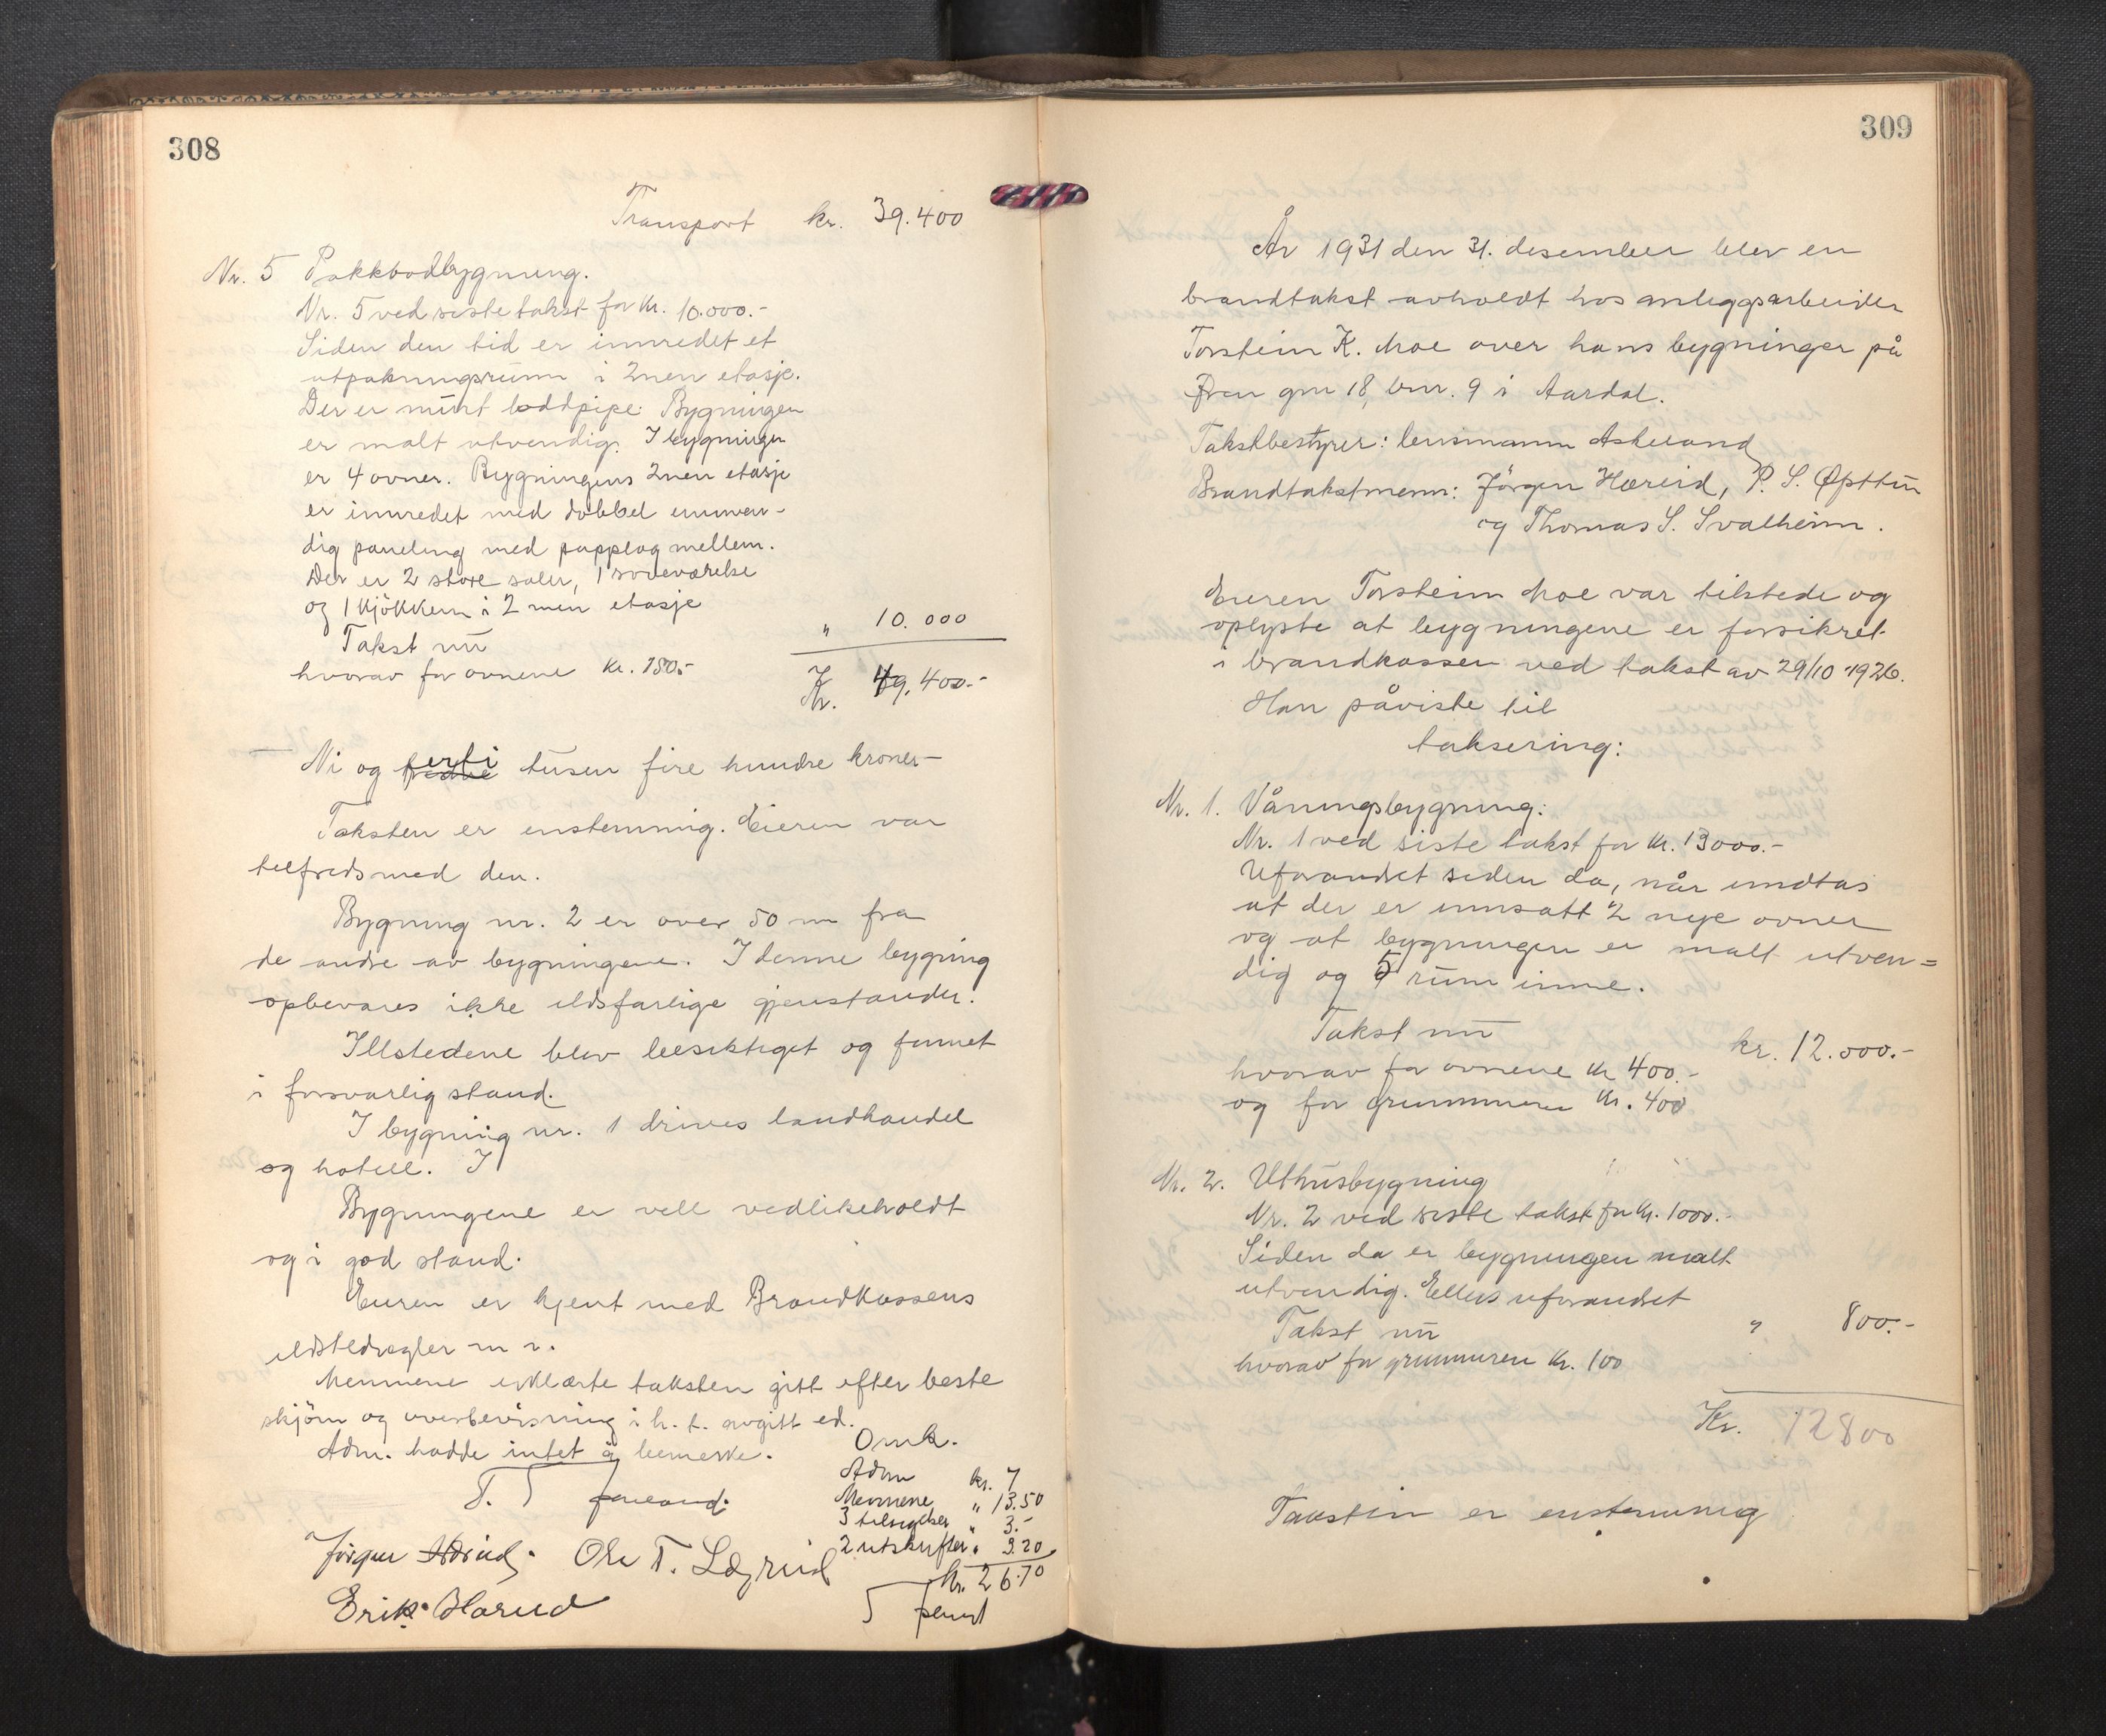 308
Transport kr. 39.400
Nr. 5 Pakkbodbygning.
Nr. 5 ved siste takst for kr. 10.000.-
Siden den tid er innredet et
utpakningsrum i 2nen etasje.
Der er murt loddpipe. Bygningen
er malt utvendig. I bygningen
er 4 ovner. Bygningens 2nen etasje
er innredet med dobbel innven-
dig paneling med papplag mellem.
Der er 2 store saler, 1 soveværelse
og 1 kjökken i 2nen etasje
Takst nu " 10.000
hvorav for ovnene kr. 180.-
Kr. 49,400.-
Ni og førti tusen fire hundre kroner
Taksten er enstemmig. Eieren var
tilfreds med den.
Bygning nr. 2 er over 50 m fra
de andre av bygningene. I denne bygning
opbevares ikke ildsfarlige gjenstander.
Illstedene blev besiktiget og funnet
i forsvarlig stand.
I bygning nr. 1 drives landhandel
og hotell. I
Bygningene er vell vedlikeholdt
og i god stand.
Eieren er kjent med Brandkassens
ildstedregler m v.
Mennene erklærte taksten gitt efter beste
skjönn og overbevisning i h. t. avgitt ed.
Adm. hadde intet å bemerke.
Omk.
Adm kr. 7
Mennene " 13.50
3 tilsigelser " 3.-
2 utskrifter " 3.20
kr. 26.70
Jörgen Hæreid. Ole T. Lægreid
Erik Hæreid
309
År 1931 den 31. desember blev en
brandtakst avholdt hos anleggsarbeider
Torstein K. Moe over hans bygninger på
gnr 18, bnr. 9 i Aardal.
Takstbestyrer: lensmann Askeland
Brandtakstmenn: Jörgen Hæreid, P. S. Øpttun
og Thomas S. Svalheim.
Eieren Torstein Moe var tilstede og
oplyste at bygningene er forsikret
i brandkassen ved takst av 29/10 1926.
Han påviste til
taksering:
Nr. 1. Våningsbygning:
Nr. 1 ved siste takst for kr. 13000.-
Uforandret siden da, når undtas
at der er innsatt 2 nye ovner
og at bygningen er malt utven=
dig og 5 rum inne.
Takst nu kr. 12.000.-
hvorav for ovnene kr 400.-
og for grunnmuren kr. 400
Nr. 2. Uthusbygning
Nr. 2 ved siste takst for kr. 1000.-
Siden da er bygningen malt
utvendig. Ellers uforandret
Takst nu " 800.-
hvorav for grunnmuren kr. 100
Kr. 12800
Taksten er enstemmig